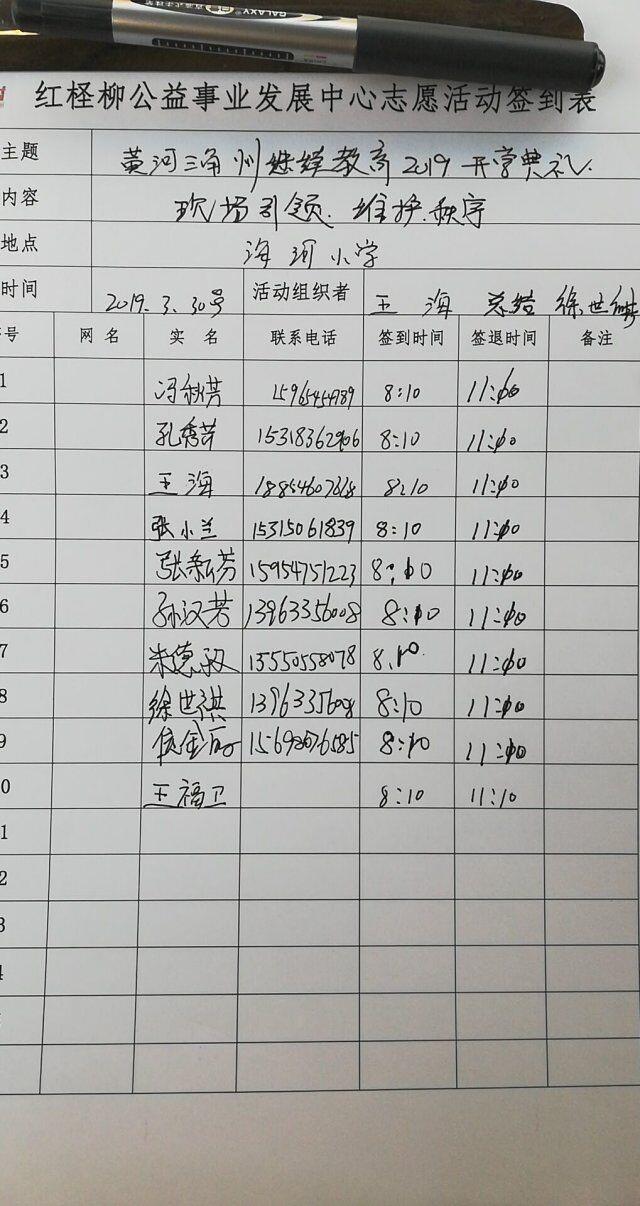 GALAXY
红柽柳公益事业发展中心志愿活动签到表
主题 黄河三角州继续教育2019开学典礼.
内容 现场引领.维护秩序
地点 海河小学
时间 2019.3.30号 活动组织者 王海 总结 徐世
号 网名 实名 联系电话 签到时间 签退时间 备注
1 冯秋芳 8:10 11:00
2 孔秀芹 15318362906 8:10 11:00
3 王海 8:10 11:00
4 张小兰 15315061839 8:10 11:00
5 张新芳 15954751223 8:10 11:00
6 孙汉芳 13963356008 8:10 11:00
7 朱德 13550558078 8.10. 11:00
8 徐世祺 8:10 11:00
9 15692076585 8:10 11:00
0 王福卫 8:10 11:10
1
2
3
4